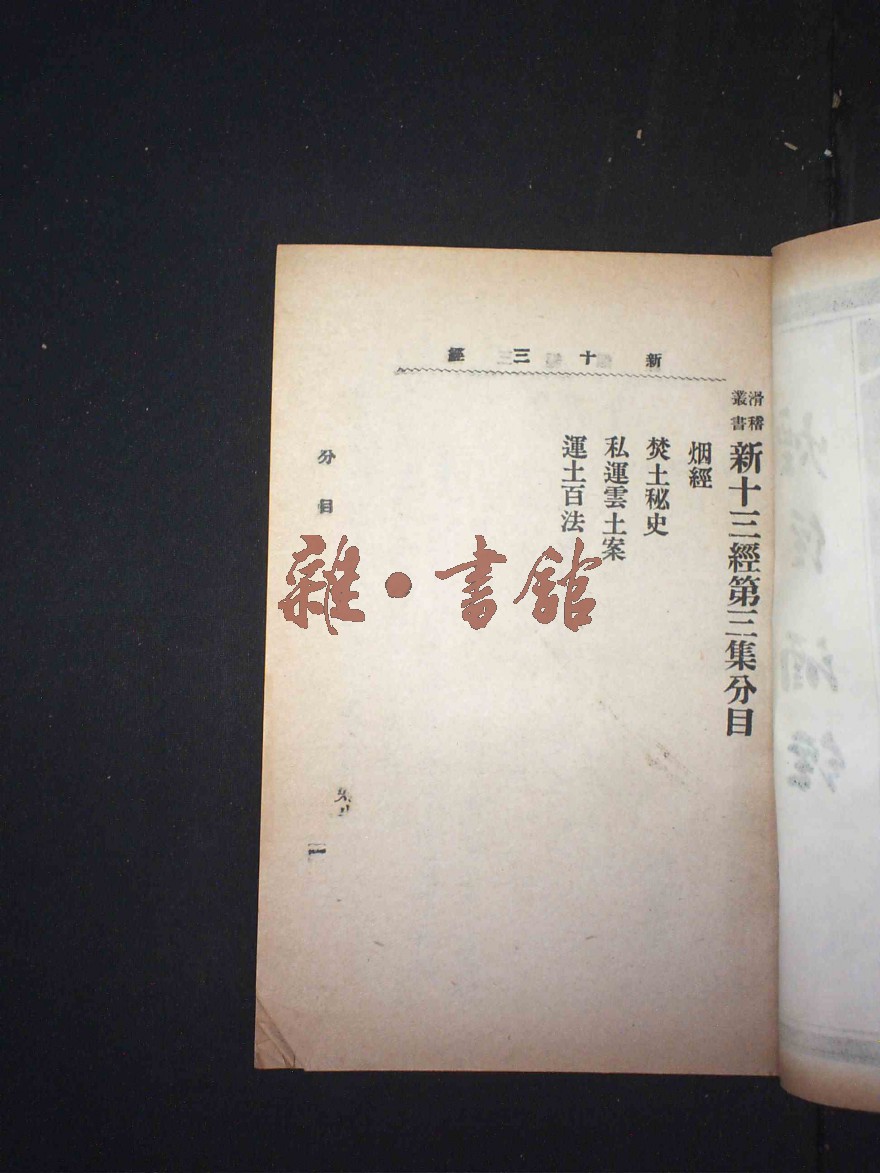 新十三經
滑稽叢書
新十三經第三集分目
烟經
焚土秘史
私運雲土案
運土百法
分目
一
雜·書館